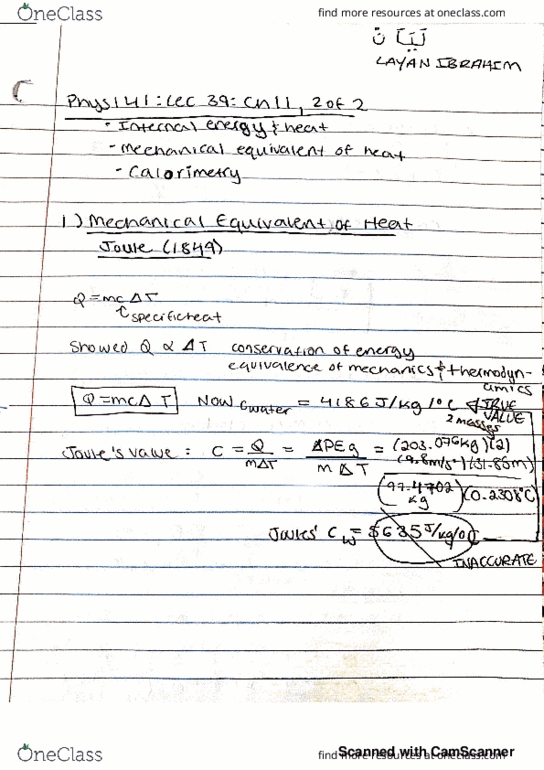 OneClass
find more resources at oneclass.com
لَيَان
LAYAN IBRAHIM
Phys141: Lec 39: Ch11, 2 of 2
- Internal energy & heat
- mechanical equivalent of heat
- Calorimetry
1) Mechanical Equivalent of Heat
Joule (1849)
Q = mcΔT
↑ specific heat
Showed Q ∝ ΔT conservation of energy
equivalence of mechanics & thermodyn-
amics
Q = mcΔT Now Cwater = 4186 J/kg/°C TRUE VALUE
2 masses
Joule's value: C = Q/mΔT = ΔPEg/mΔT = (203.076kg)(2)
(9.8m/s²)
kg (0.2308°C)
Joules' Cw = 5635 J/kg/°C
INACCURATE
Scanned with CamScanner
OneClass
find more resources at oneclass.com